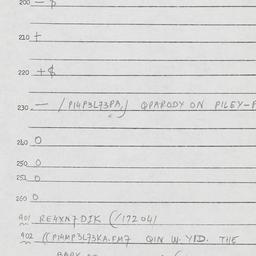 200 — $
210 +
220 + $
230 — / PI4P3L73PA,/ QPARODY ON PILEY-P
240 0
250 0
251 0
260 0
401 RE4XN7DIK (/17204/
402 ((PI4MP3L73KA.FM7 QIN W. YID. THE